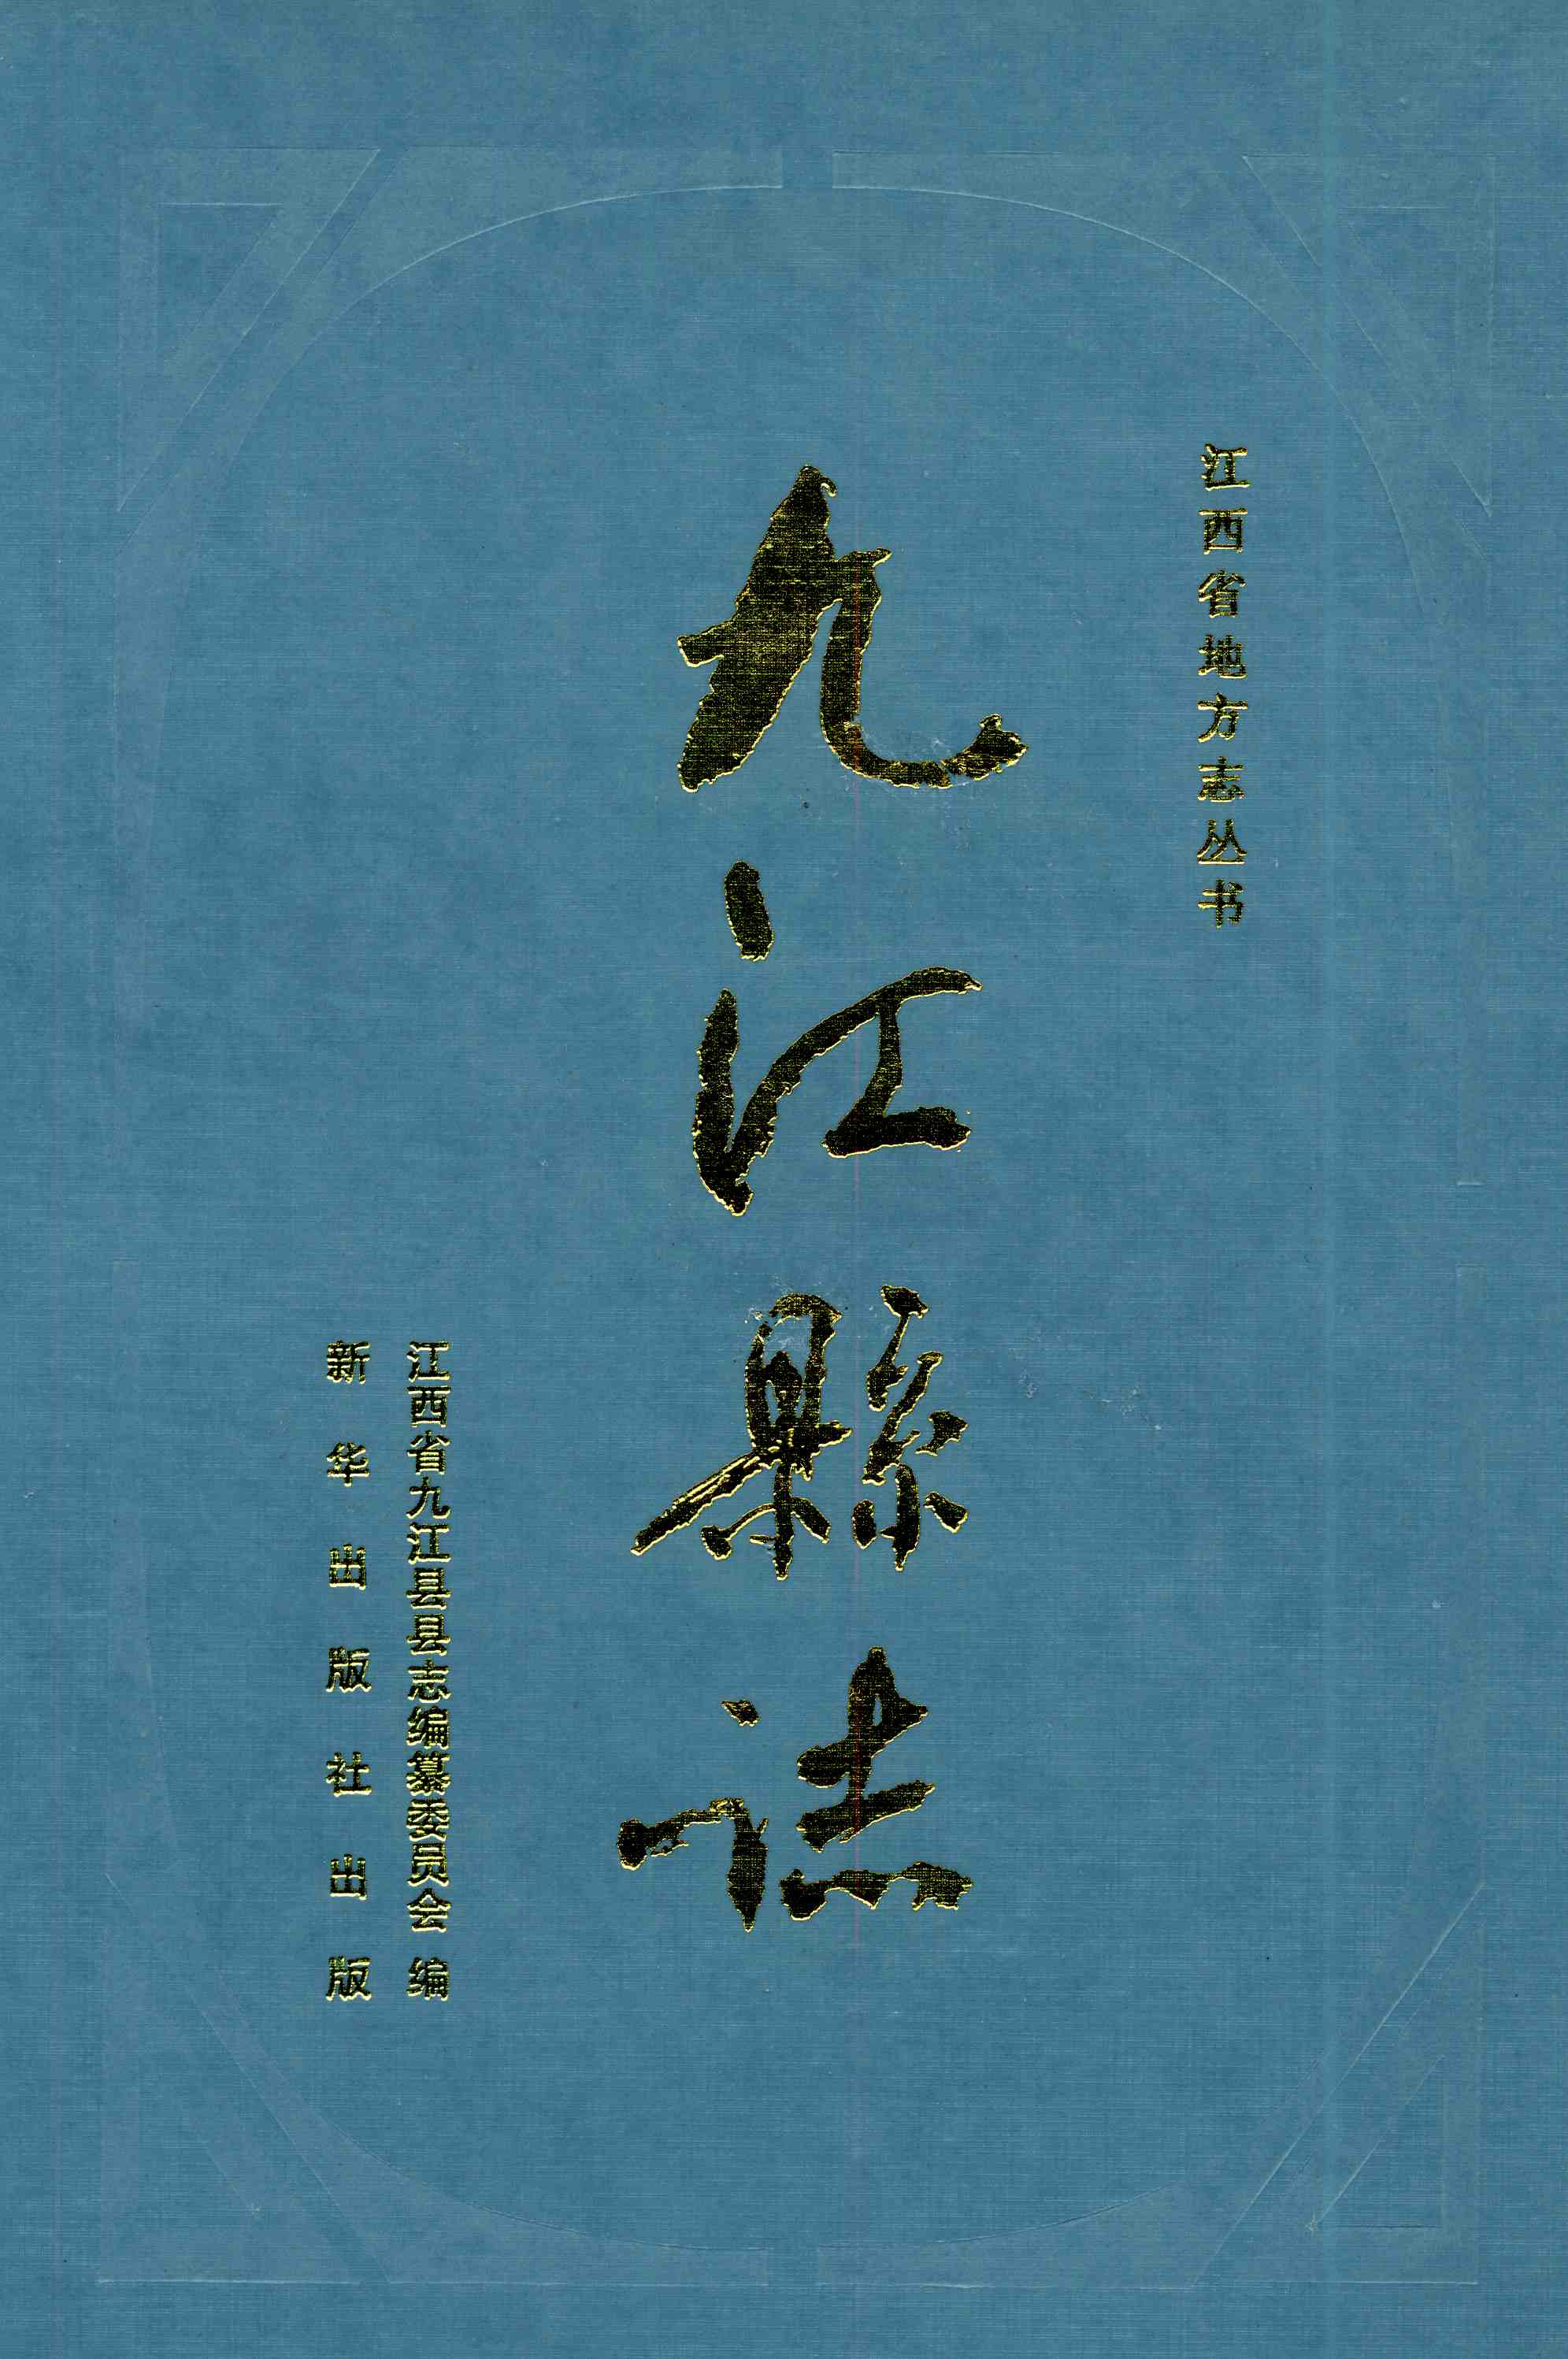 江西省地方志丛书
九江縣誌
江西省九江县县志编纂委员会 编
新华出版社出版